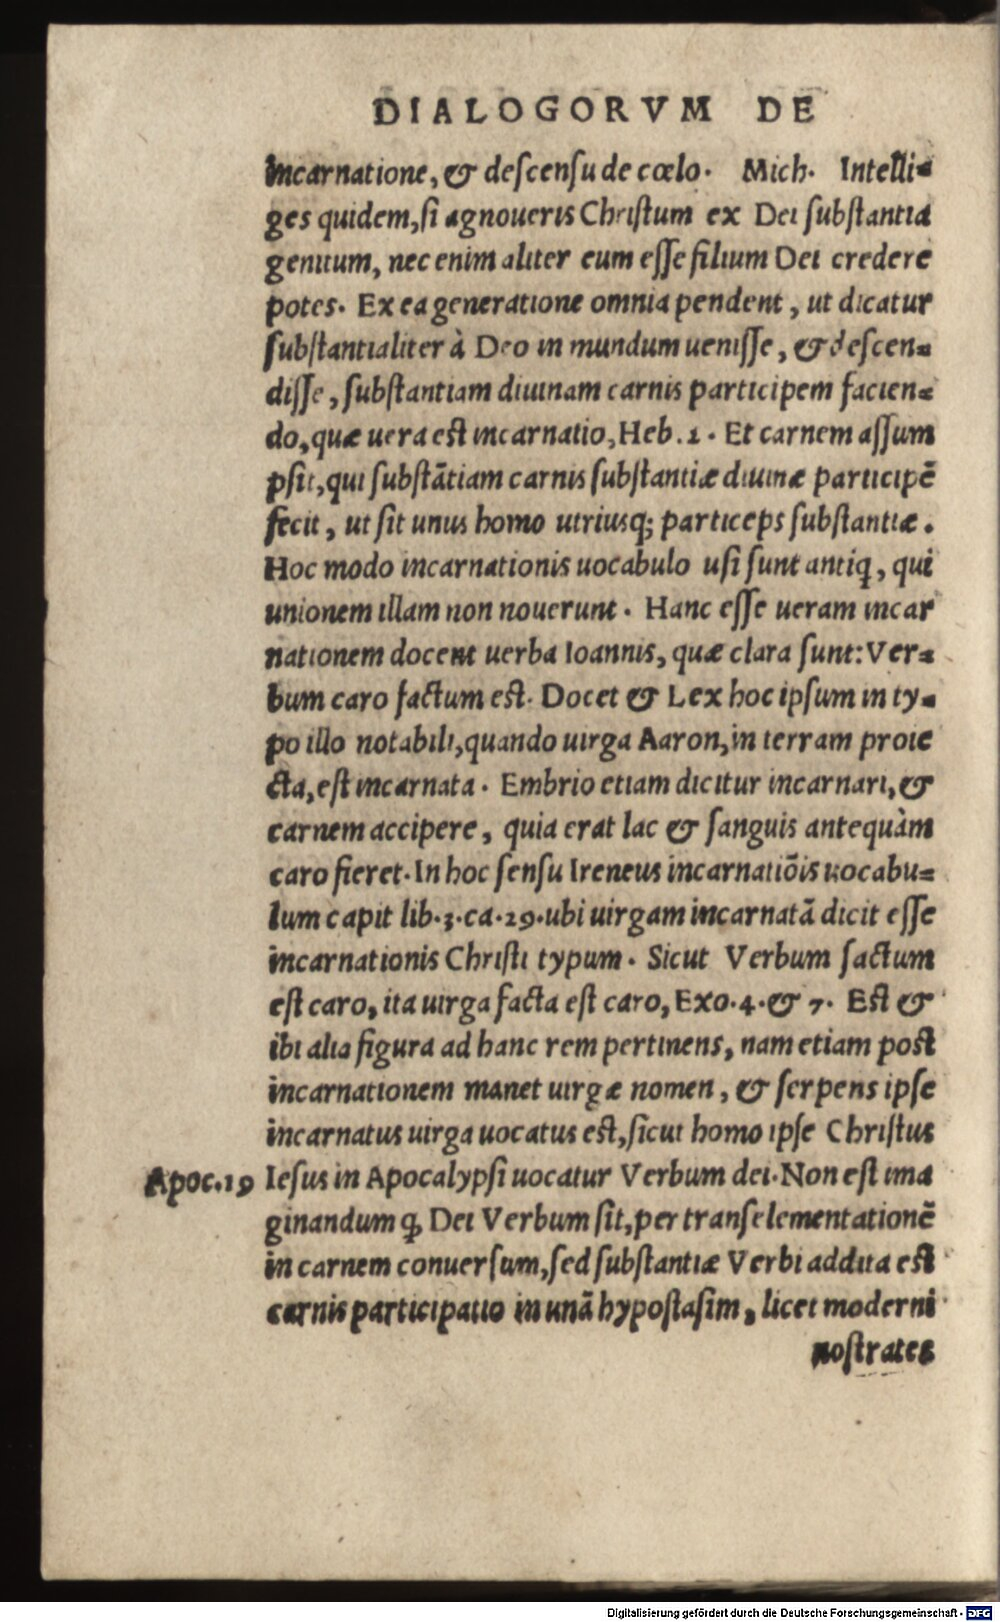 DIALOGORVM DE
incarnatione, & deſcenſu de cœlo. Mich. Intelli-
ges quidem, ſi agnoueris Chriſtum ex Dei ſubſtantia
genitum, nec enim aliter eum eſſe filium Dei credere
potes. Ex ea generatione omnia pendent, ut dicatur
ſubſtantialiter à Deo in mundum ueniſſe, & deſcen-
diſſe, ſubſtantiam diuinam carnis participem facien-
do, quæ uera eſt incarnatio, Heb. 2. Et carnem aſſum
pſit, qui ſubſtãtiam carnis ſubſtantiæ diuinæ participẽ
fecit, ut ſit unus homo utriusq; particeps ſubſtantiæ.
Hoc modo incarnationis uocabulo uſi ſunt antiq, qui
unionem illam non nouerunt. Hanc eſſe ueram incar
nationem docent uerba Ioannis, quæ clara ſunt: Ver-
bum caro factum eſt. Docet & Lex hoc ipſum in ty-
po illo notabili, quando uirga Aaron, in terram proie
cta, eſt incarnata. Embrio etiam dicitur incarnari, &
carnem accipere, quia erat lac & ſanguis antequàm
caro fieret. In hoc ſenſu Ireneus incarnatiõis uocabu-
lum capit lib.3.ca.29. ubi uirgam incarnatã dicit eſſe
incarnationis Chriſti typum. Sicut Verbum factum
eſt caro, ita uirga facta eſt caro, Exo.4.& 7. Eſt &
ibi alia figura ad hanc rem pertinens, nam etiam poſt
incarnationem manet uirgæ nomen, & ſerpens ipſe
incarnatus uirga uocatus eſt, ſicut homo ipſe Chriſtus
Apoc.19 Ieſus in Apocalypſi uocatur Verbum dei. Non eſt ima
ginandum ꝙ Dei Verbum ſit, per tranſelementationẽ
in carnem conuerſum, ſed ſubſtantiæ Verbi addita eſt
carnis participatio in unã hypoſtaſim, licet moderni
noſtrates
Digitalisierung gefördert durch die Deutsche Forschungsgemeinschaft - DFG